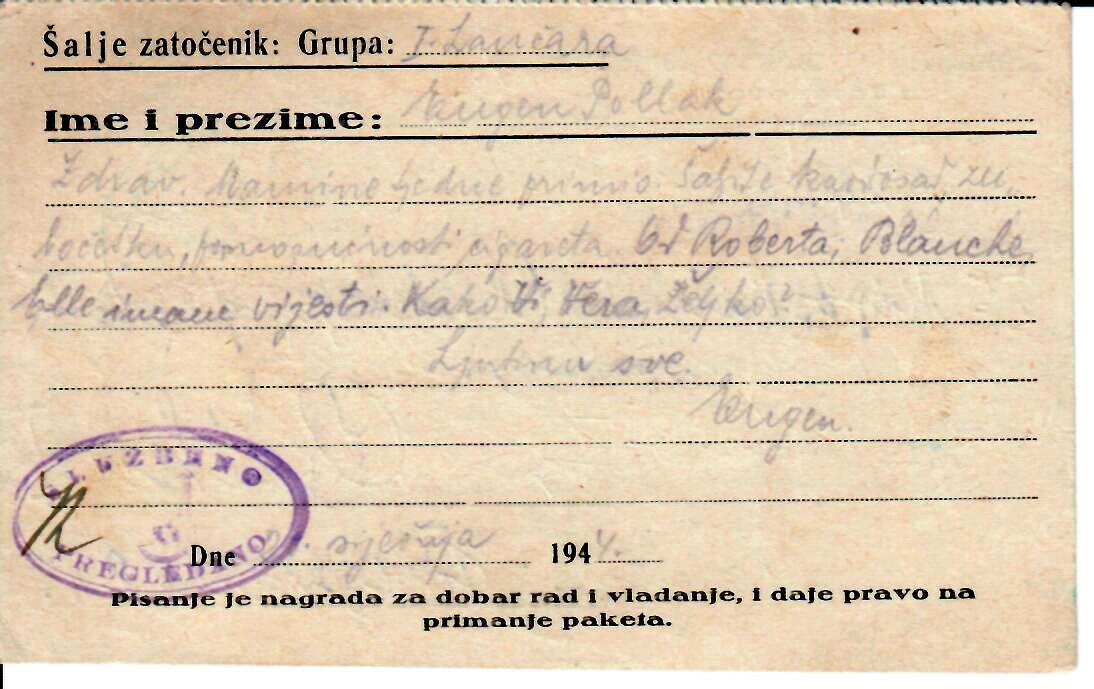 Šalje zatočenik: Grupa: I. Lančara
Ime i prezime: Eugen Pollak
Zdrav. Mamine primio. Šaljite
cigareta. Od Roberta, Blanche,
Elle imame vijesti. Kako Vi, Vera, Željko?
Ljubim sve.
Eugen.
SLUŽBENO
G
PREGLEDANO
Dne siječnja 1944.
Pisanje je nagrada za dobar rad i vladanje, i daje pravo na
primanje paketa.